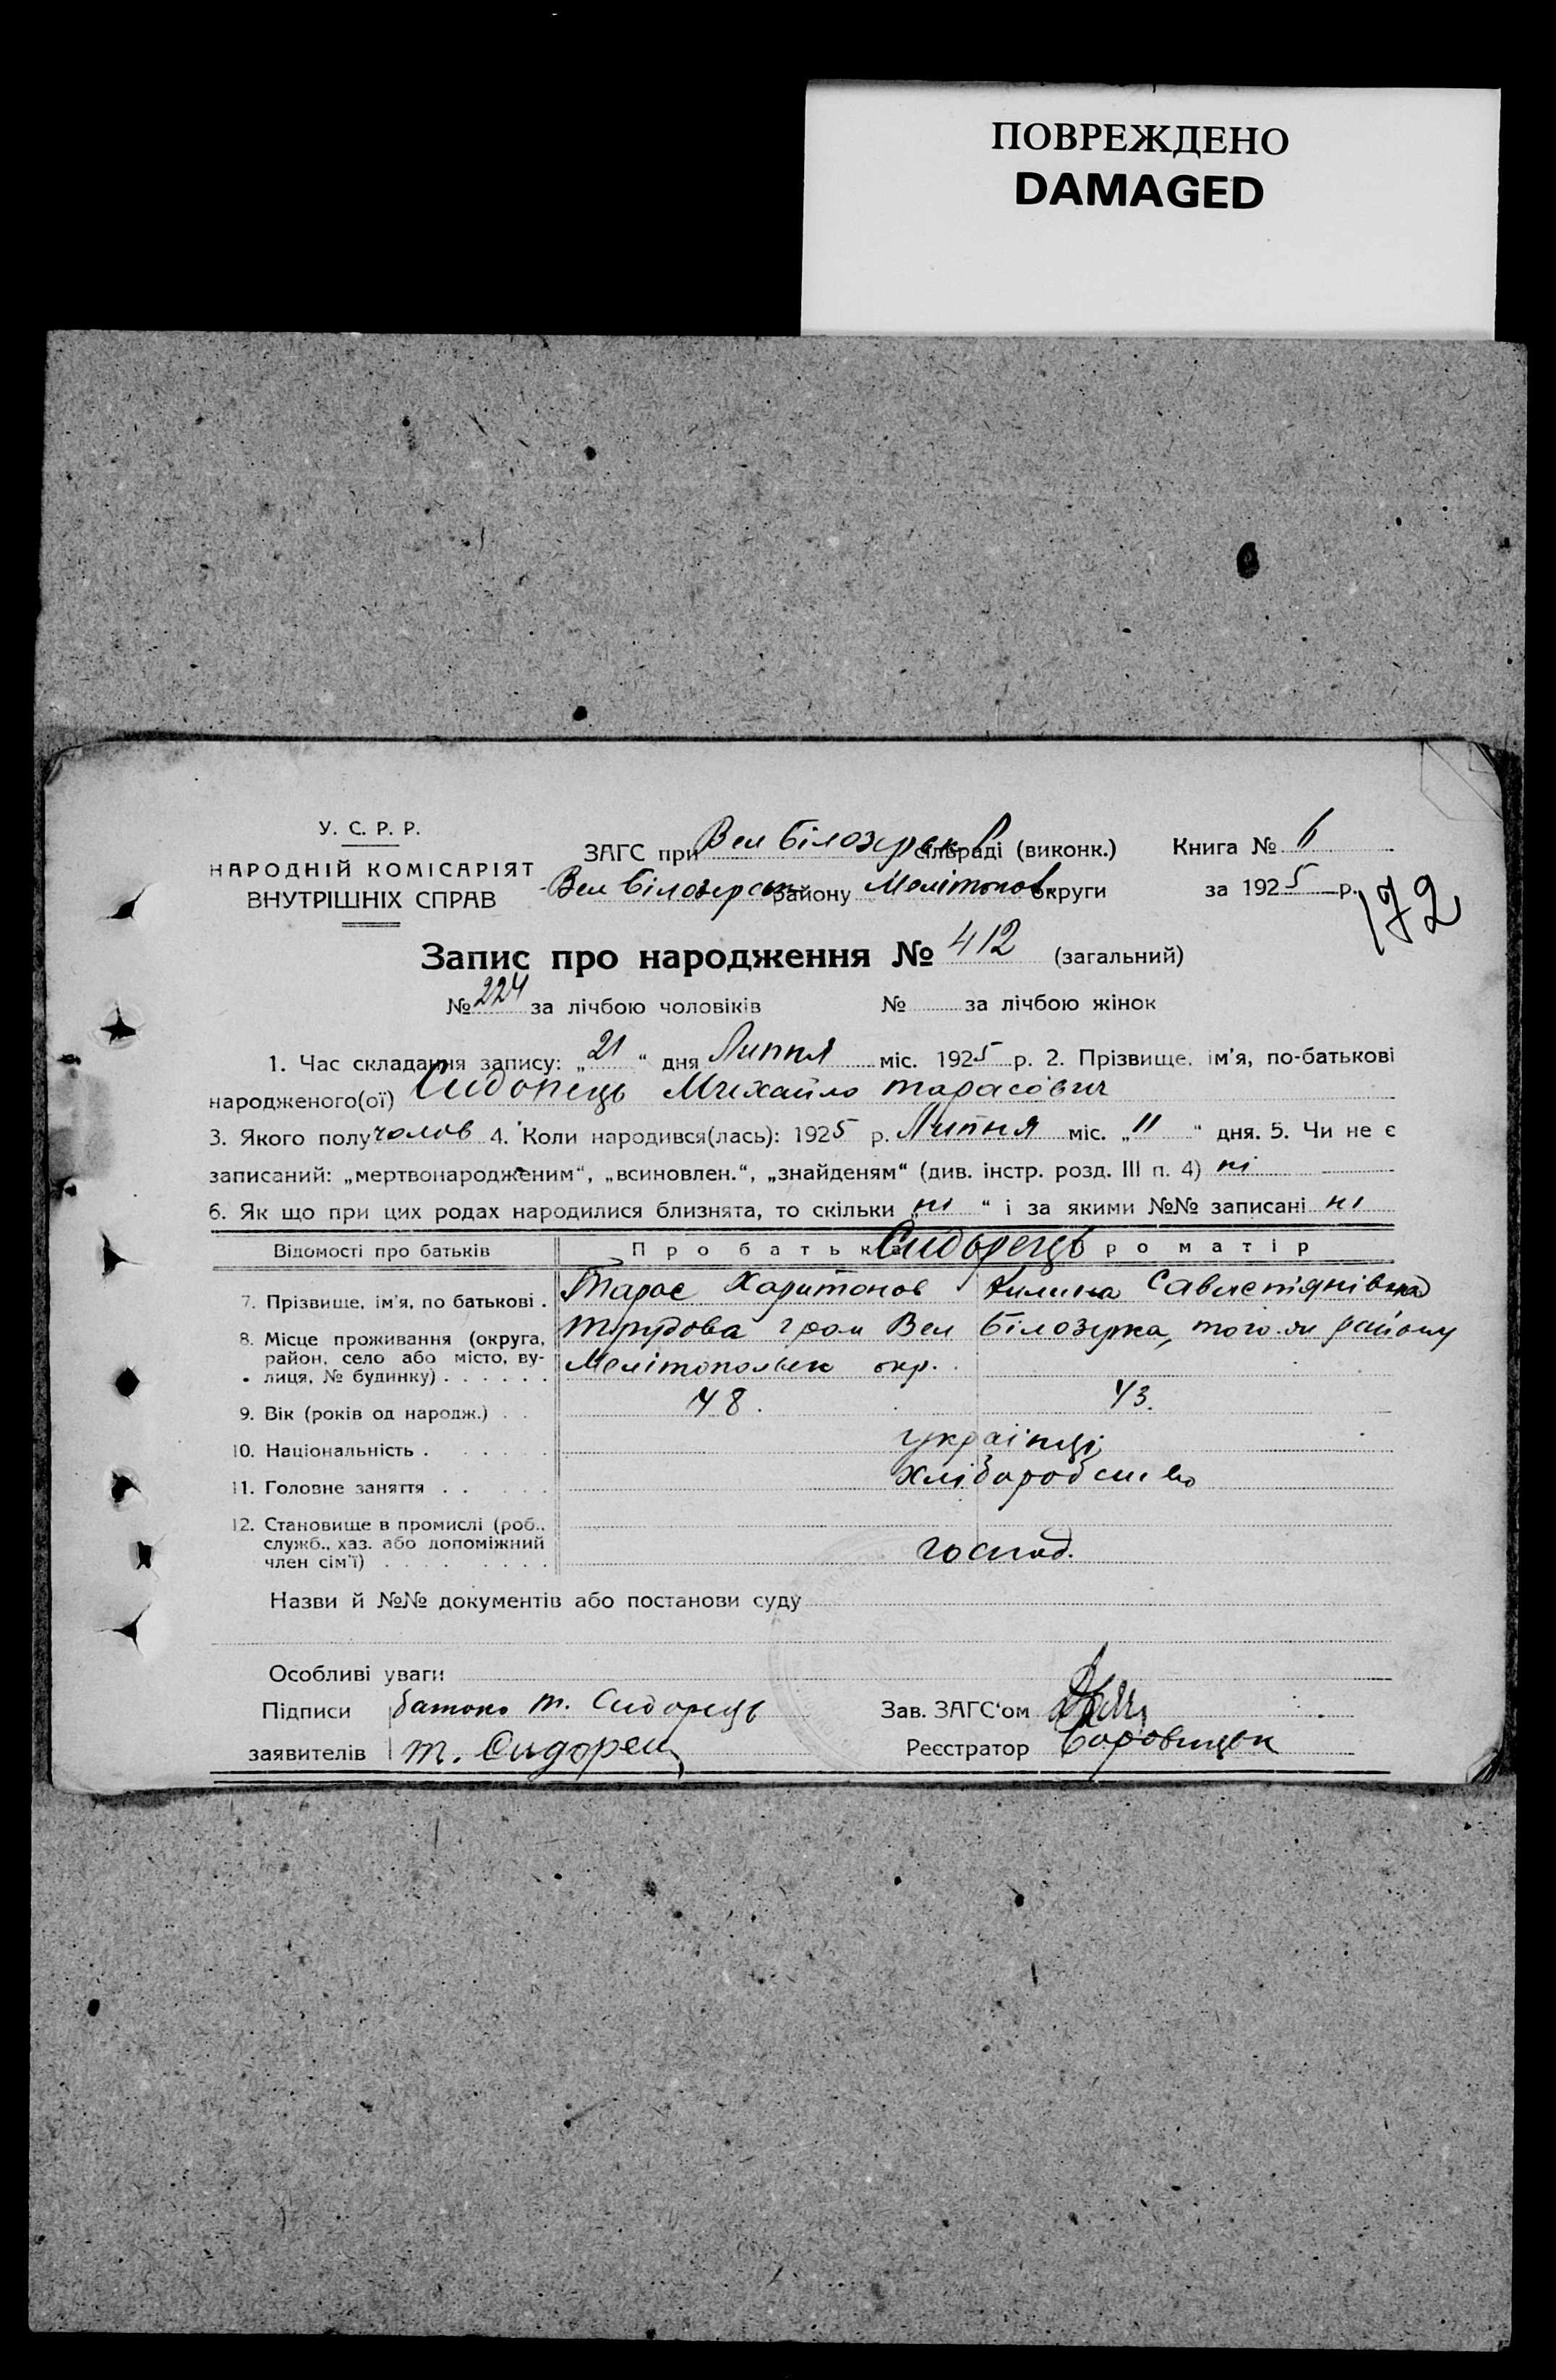 ПОВРЕЖДЕНО
DAMAGED
У. С. Р. Р.
НАРОДНІЙ КОМІСАРІЯТ
ВНУТРІШНІХ СПРАВ
ЗАГС при Вел Білозерськ сільраді (виконк.)
Вел Білозерськ району Мелітопов. округи
Книга № 6
за 1925 р.
172
Запис про народження № 412 (загальний)
№ 224 за лічбою чоловіків № за лічбою жінок
1. Час складання запису: „21“ дня Липня міс. 1925 р. 2. Прізвище, ім'я, по-батькові
народженого(ої) Сидорець Михайло Тарасович
3. Якого полу чолов 4. Коли народився(лась): 1925 р. Липня міс. „11“ дня. 5. Чи не є
записаний: „мертвонародженим“, „всиновлен.“, „знайденям“ (див. інстр. розд. III п. 4) ні
6. Як що при цих родах народилися близнята, то скільки „ні“ і за якими №№ записані ні
Відомості про батьків Про батька Сидорець ро матір
7. Прізвище, ім'я, по батькові . Тарас Харитонов Килина
8. Місце проживання (округа, район, село або місто, вулиця, № будинку) . . . . . .
Трудова гром Вел Білозерка, того-ж району
Мелітопольськ окр.
9. Вік (років од народж.) . . 48. 43.
10. Національність . українці
11. Головне заняття . . хліборобство
12. Становище в промислі (роб.,
служб., хаз. або допоміжний
член сім'ї) господ.
Назви й №№ документів або постанови суду
Особливі уваги
Підписи батько Т. Сидорець Зав. ЗАГС'ом
заявителів Т. Сидорец Реєстратор